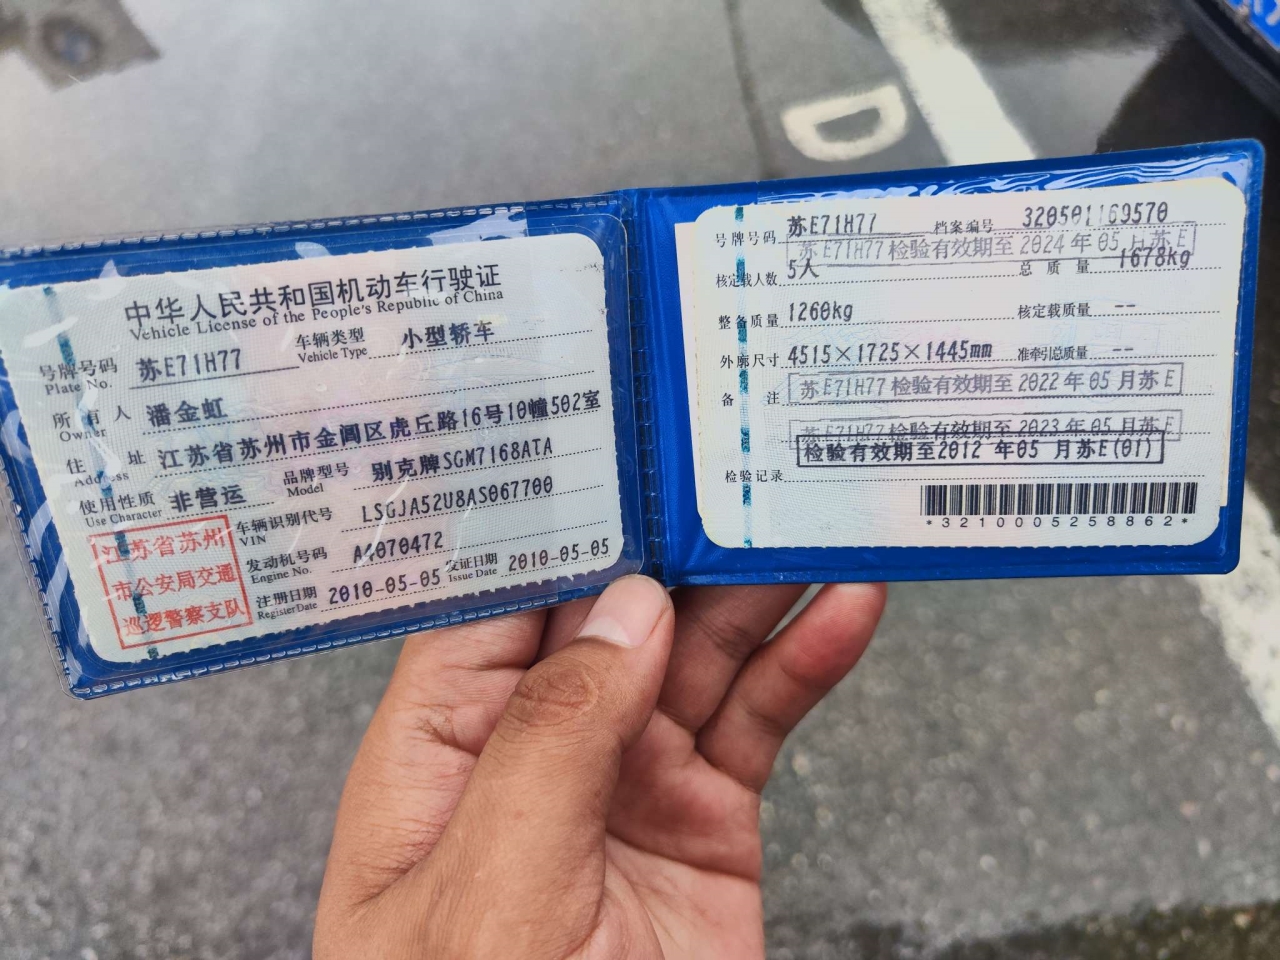 中华人民共和国机动车行驶证
Vehicle License of the People's Republic of China
号牌号码 苏E71H77 车辆类型 小型轿车
Plate No. Vehicle Type
所有人 潘金虹
Owner
住址 江苏省苏州市金阊区虎丘路16号10幢502室
Address
使用性质 非营运 品牌型号 别克牌SGM7168ATA
Use Character Model
车辆识别代号 LSGJA52U8AS067700
VIN
发动机号码 A4070472
Engine No.
注册日期 2010-05-05 发证日期 2010-05-05
Register Date Issue Date
江苏省苏州
市公安局交通
巡逻警察支队
号牌号码 苏E71H77 档案编号 320501169570
苏E71H77检验有效期至2024年05月苏E
核定载人数 5人 总质量 1678kg
整备质量 1260kg 核定载质量 --
外廓尺寸 4515×1725×1445mm 准牵引总质量 --
苏E71H77检验有效期至2022年05月苏E
备注
苏E71H77检验有效期至2023年05月苏E
检验有效期至2012年05月苏E(01)
检验记录
*3210005258862*